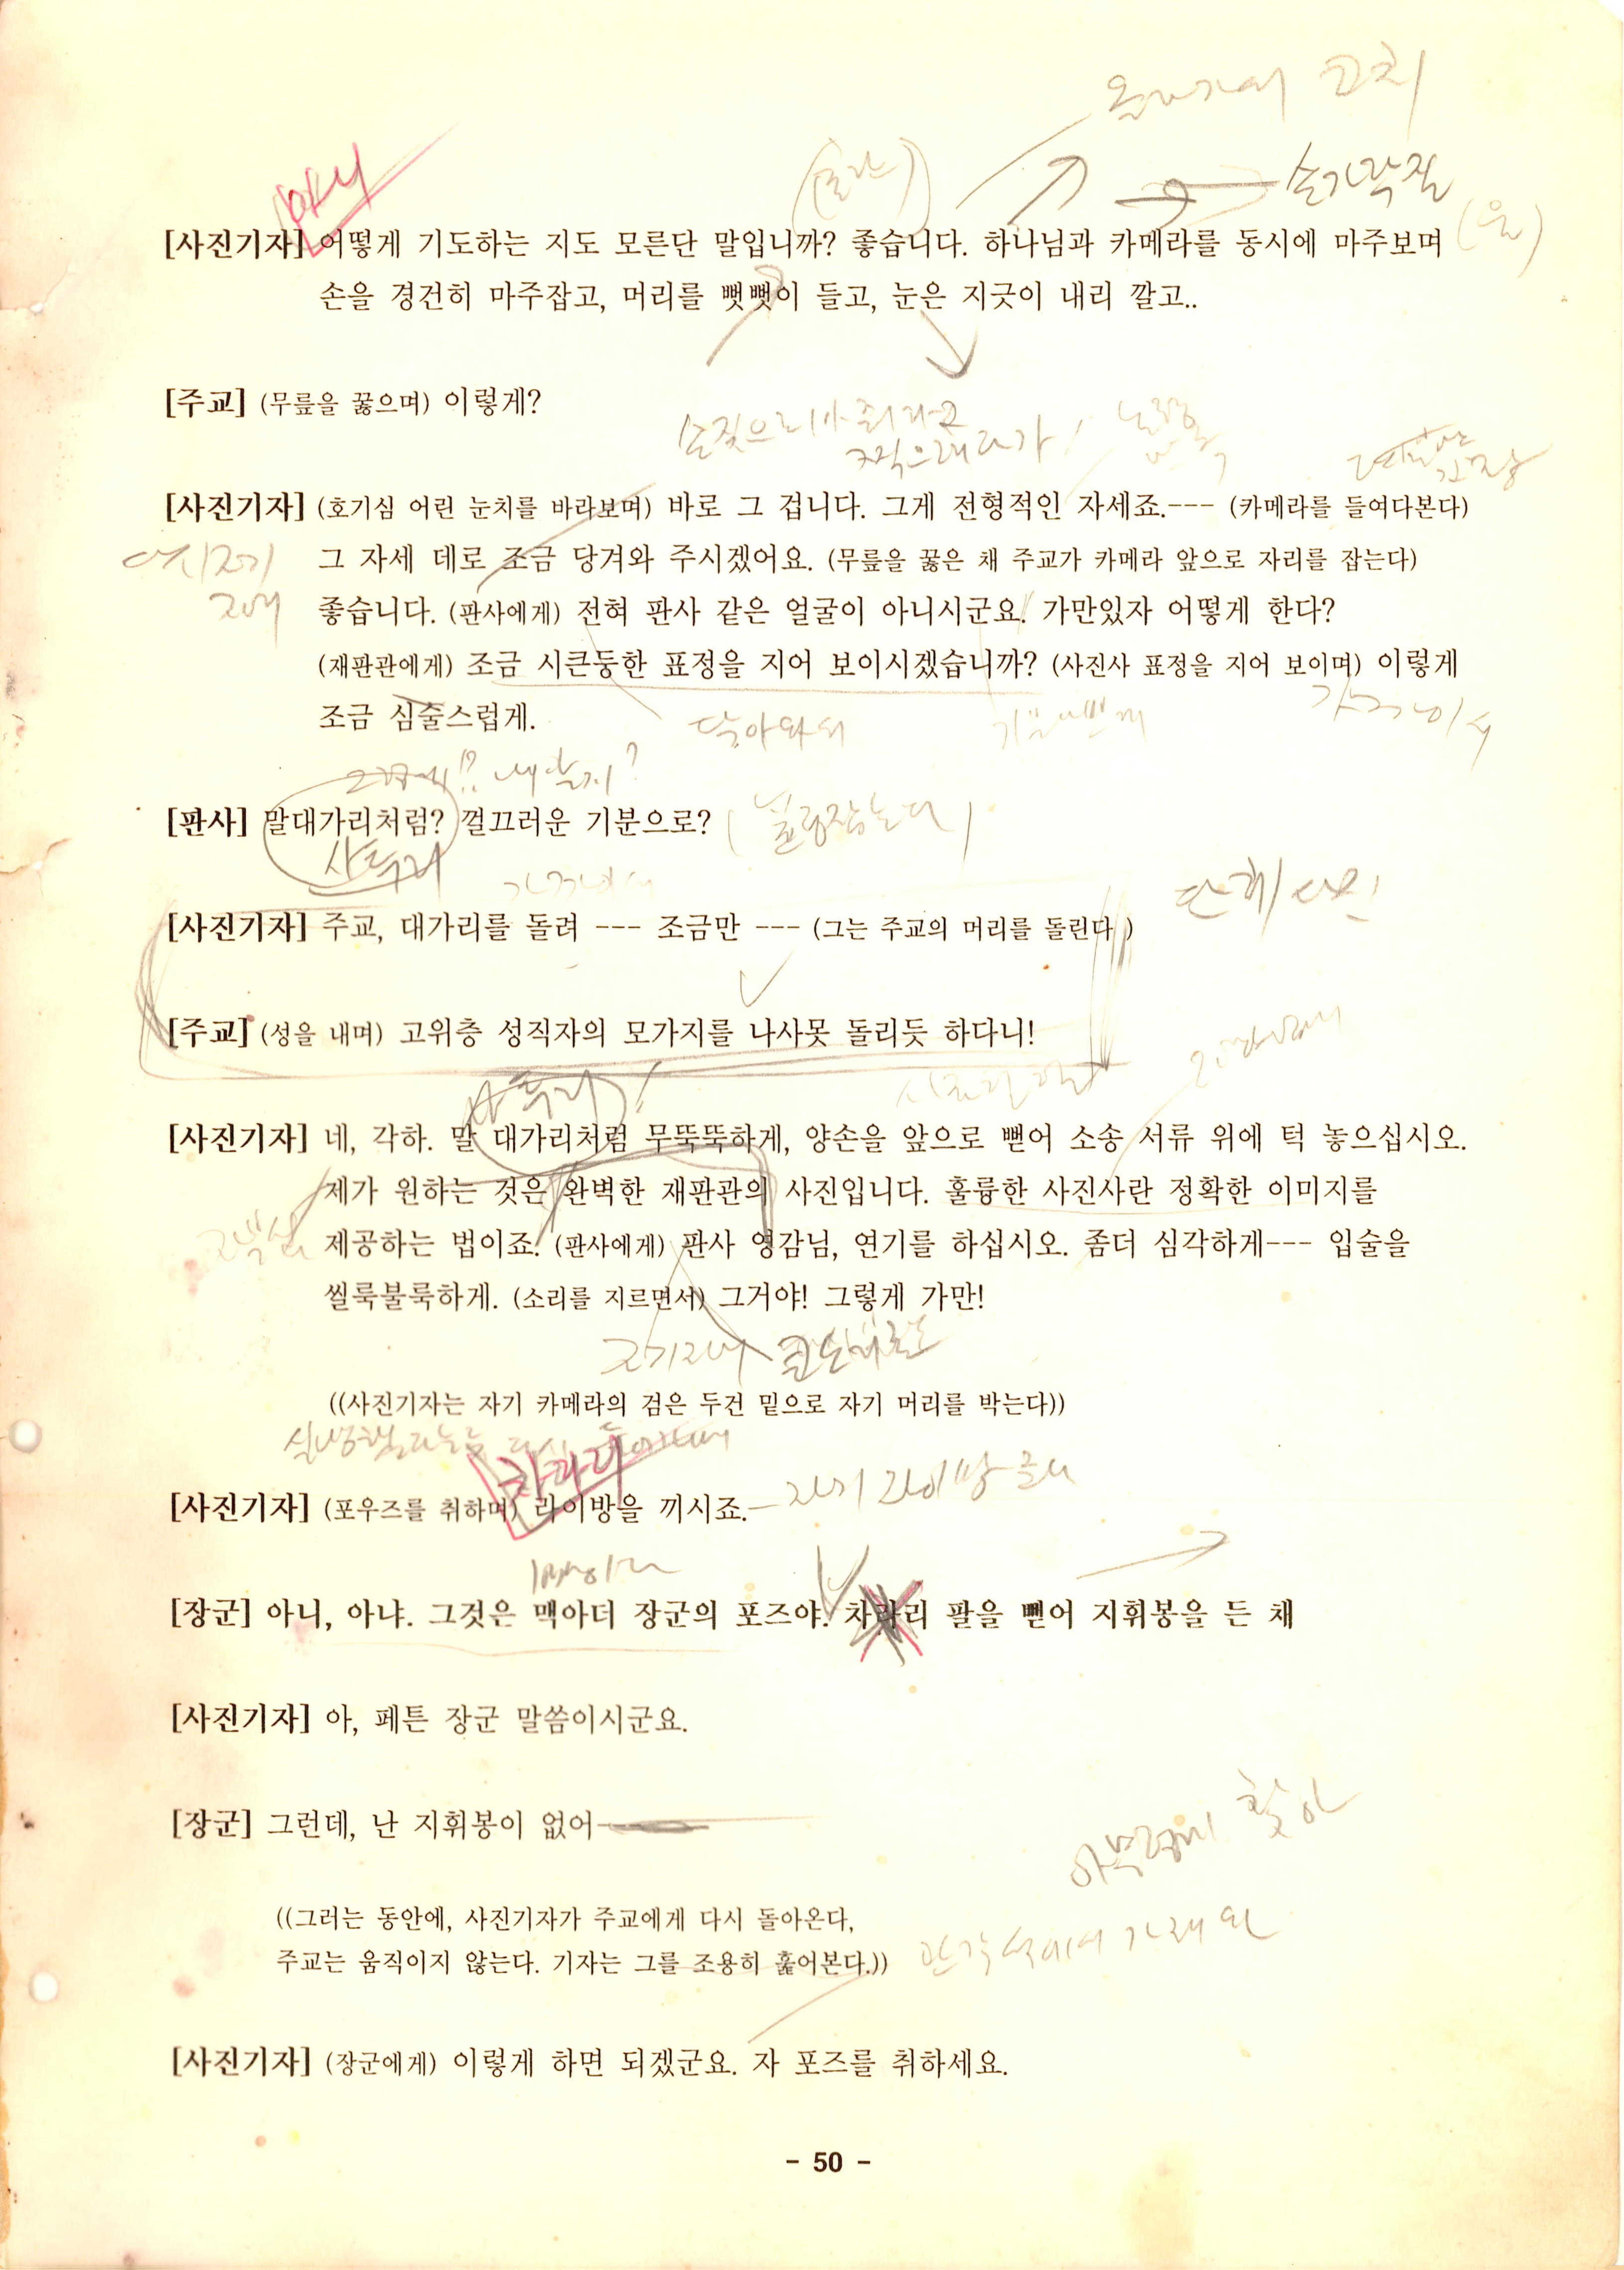 올라가서 고치
손가락질
아니
[사진기자] 어떻게 기도하는 지도 모른단 말입니까? 좋습니다. 하나님과 카메라를 동시에 마주보며
손을 경건히 마주잡고, 머리를 뻣뻣이 들고, 눈은 지긋이 내리 깔고..
[주교] (무릎을 꿇으며) 이렇게?
[사진기자] (호기심 어린 눈치를 바라보며) 바로 그 겁니다. 그게 전형적인 자세죠.--- (카메라를 들여다본다)
그 자세 데로 조금 당겨와 주시겠어요. (무릎을 꿇은 채 주교가 카메라 앞으로 자리를 잡는다)
좋습니다. (판사에게) 전혀 판사 같은 얼굴이 아니시군요! 가만있자 어떻게 한다?
(재판관에게) 조금 시큰둥한 표정을 지어 보이시겠습니까? (사진사 표정을 지어 보이며) 이렇게
조금 심술스럽게.
[판사] 말대가리처럼? 껄끄러운 기분으로?
사투리
[사진기자] 주교, 대가리를 돌려 --- 조금만 --- (그는 주교의 머리를 돌린다.)
단체사진!
[주교] (성을 내며) 고위층 성직자의 모가지를 나사못 돌리듯 하다니!
사투리!
[사진기자] 네, 각하. 말 대가리처럼 무뚝뚝하게, 양손을 앞으로 뻗어 소송 서류 위에 턱 놓으십시오.
제가 원하는 것은 완벽한 재판관의 사진입니다. 훌륭한 사진사란 정확한 이미지를
제공하는 법이죠. (판사에게) 판사 영감님, 연기를 하십시오. 좀더 심각하게--- 입술을
씰룩불룩하게. (소리를 지르면서) 그거야! 그렇게 가만!
((사진기자는 자기 카메라의 검은 두건 밑으로 자기 머리를 박는다))
차라리
[사진기자] (포우즈를 취하며) 라이방을 끼시죠.
자기 라이방
[장군] 아니, 아냐. 그것은 맥아더 장군의 포즈야. 차라리 팔을 뻗어 지휘봉을 든 채
[사진기자] 아, 페튼 장군 말씀이시군요.
[장군] 그런데, 난 지휘봉이 없어
((그러는 동안에, 사진기자가 주교에게 다시 돌아온다,
주교는 움직이지 않는다. 기자는 그를 조용히 훑어본다.))
[사진기자] (장군에게) 이렇게 하면 되겠군요. 자 포즈를 취하세요.
- 50 -